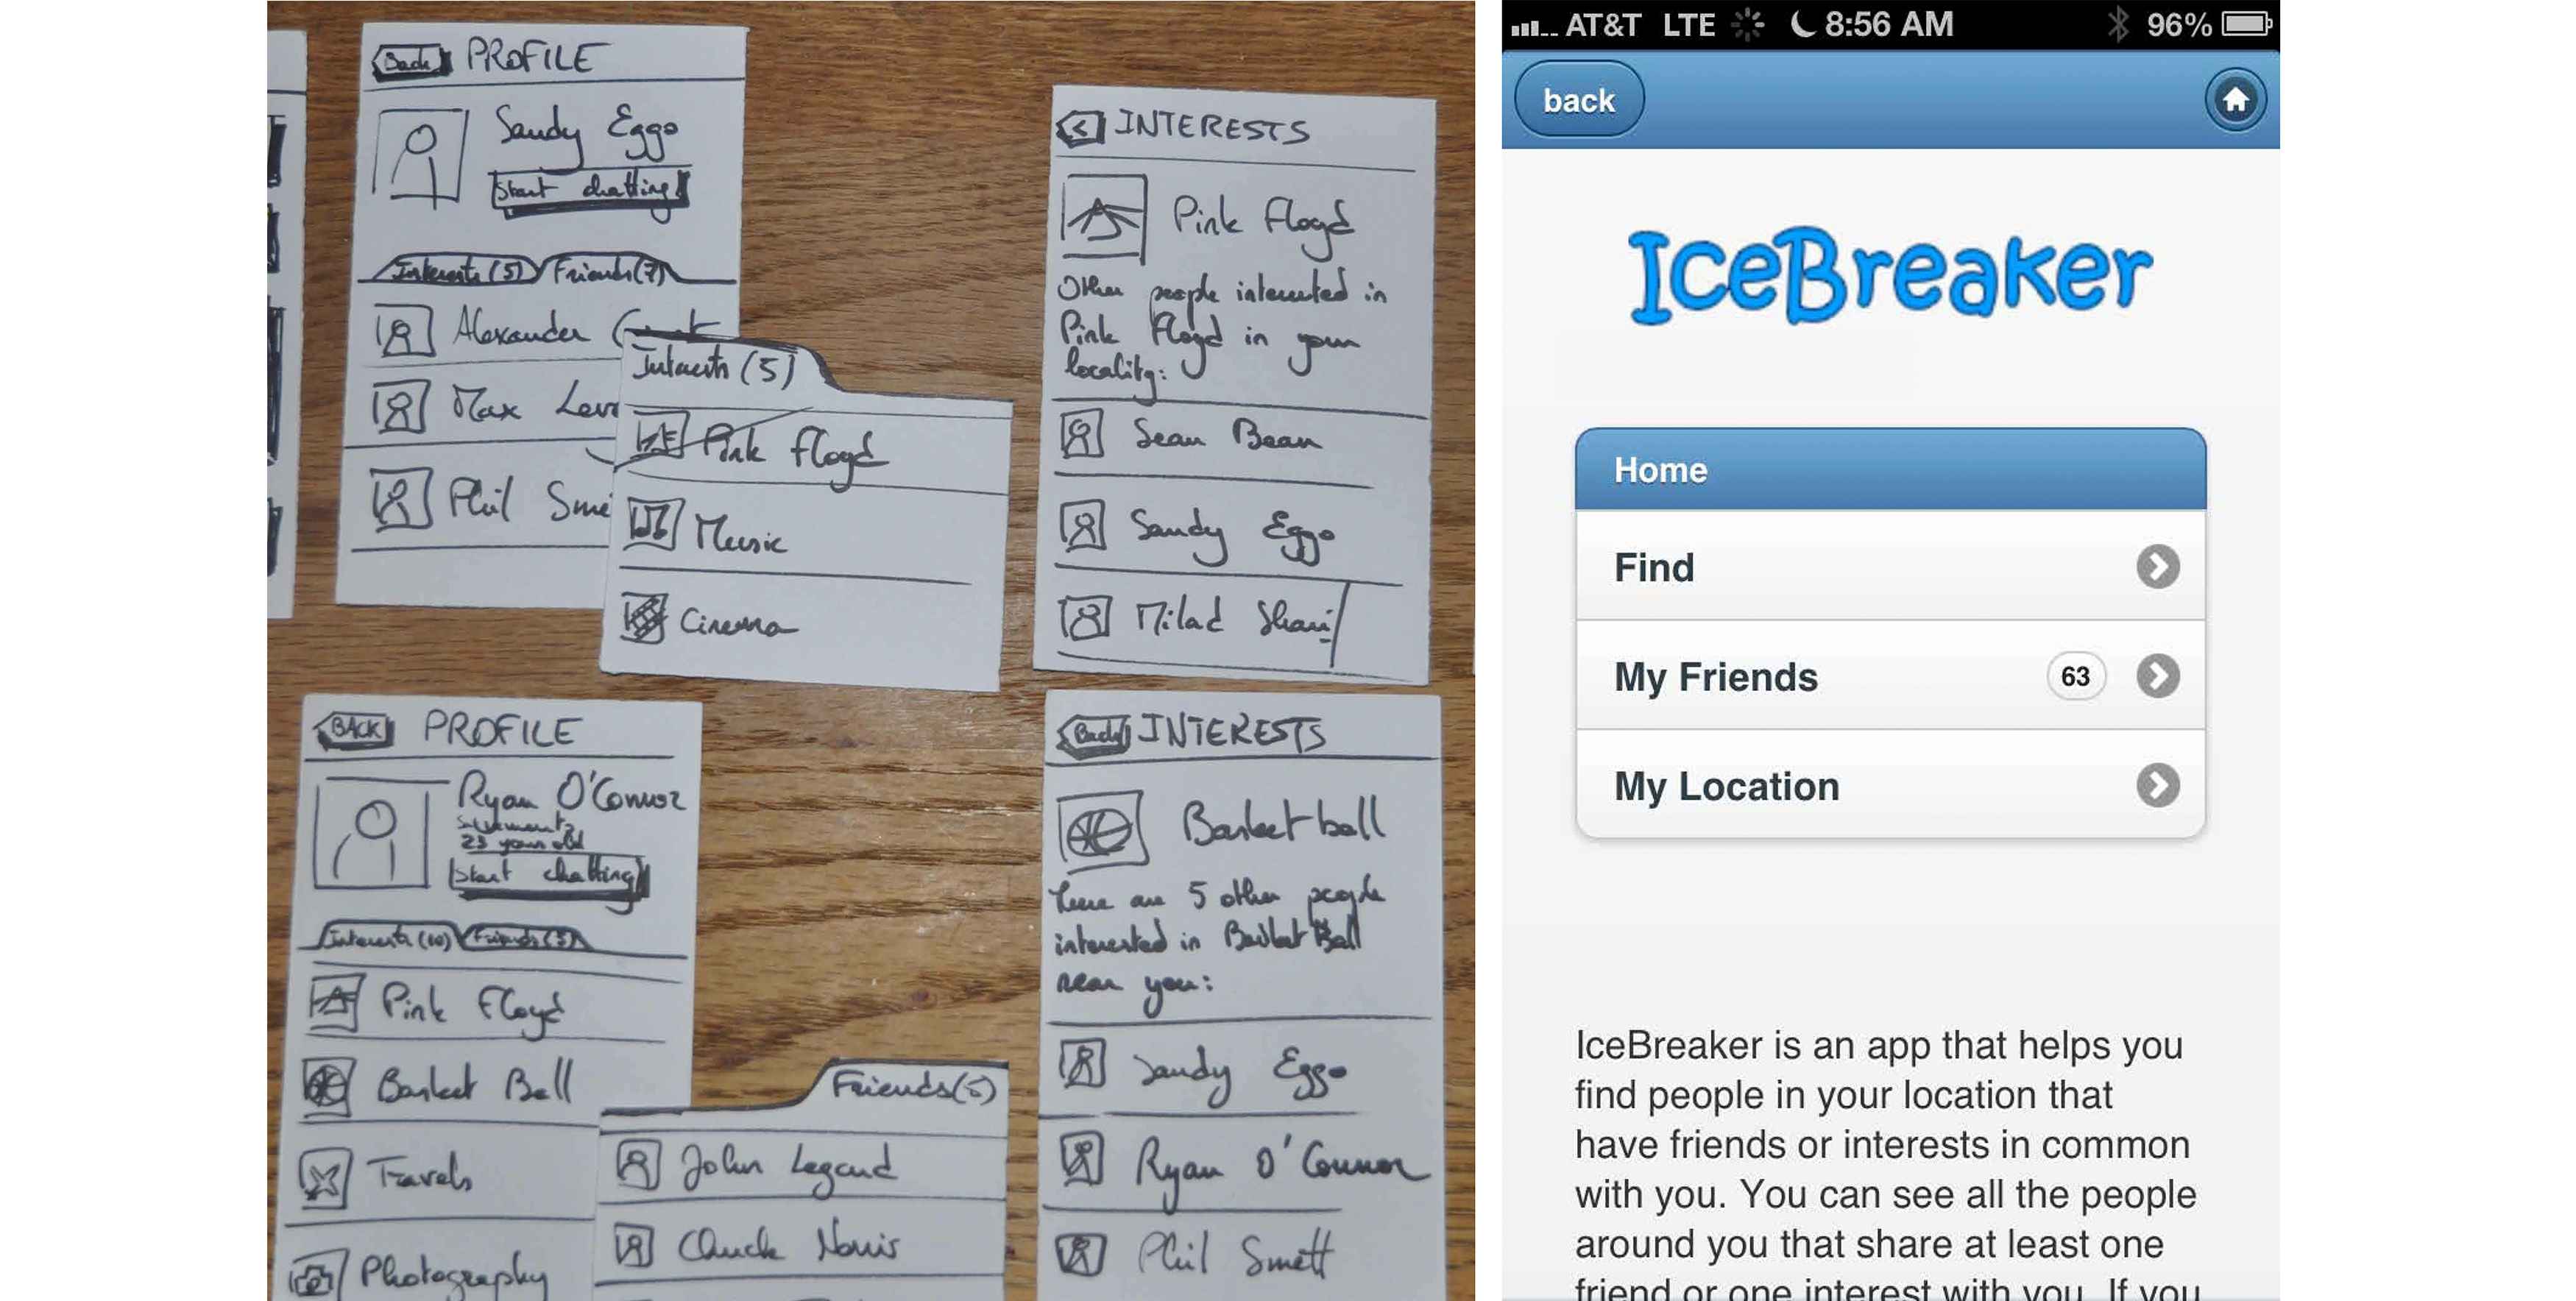 Back PROFILE
Sandy Eggo
Start chatting
Interests (5) Friends (7)
Alexander
Max
Phil
Interests (5)
Pink Floyd
Music
Cinema
< INTERESTS
Pink Floyd
Other people interested in
Pink Floyd in your
locality:
Sean Bean
Sandy Eggo
Milad
BACK PROFILE
Ryan O'Connor
23 years old
Start chatting
Interests (10) Friends (5)
Pink Floyd
Basket Ball
Travels
Photography
Friends (5)
John Legend
Chuck Norris
Back INTERESTS
Basket ball
There are 5 other people
interested in Basket Ball
near you:
Sandy Eggo
Ryan O'Connor
Phil Smett
AT&T LTE 8:56 AM 96%
back
IceBreaker
Home
Find
My Friends 63
My Location
IceBreaker is an app that helps you
find people in your location that
have friends or interests in common
with you. You can see all the people
around you that share at least one
friend or one interest with you. If you